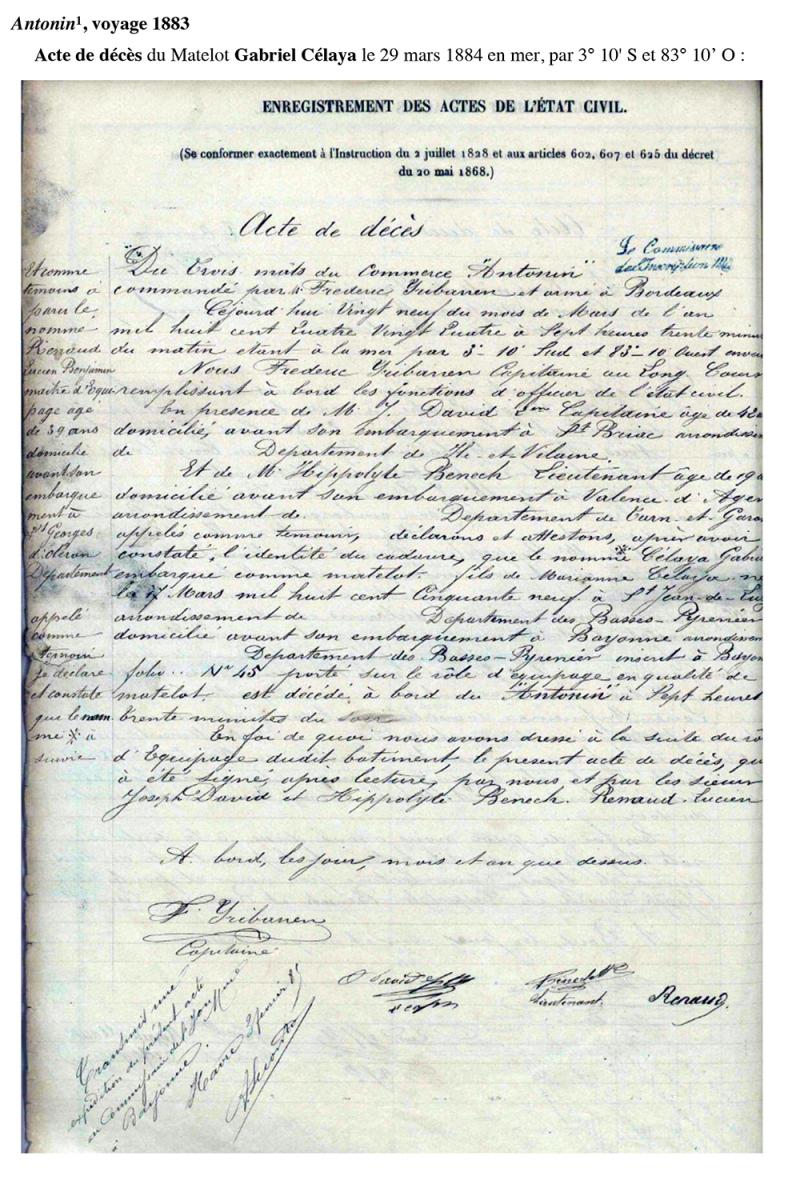 Antonin¹, voyage 1883
Acte de décès du Matelot Gabriel Célaya le 29 mars 1884 en mer, par 3° 10' S et 83° 10’ O :
ENREGISTREMENT DES ACTES DE L'ÉTAT CIVIL.
(Se conformer exactement à l'Instruction du 2 juillet 1828 et aux articles 602, 607 et 625 du décret
du 20 mai 1868.)
Acte de décès
Le Commissaire
de l'Inscription
Du Trois mâts du Commerce "Antonin"
commandé par Mr Frederic Yribarren et armé à Bordeaux
Cejourd'hui Vingt neuf du mois de Mars de l'an
mil huit cent Quatre Vingt Quatre à Sept heures trente minu
du matin etant à la mer par 3°-10' Sud et 83°-10 Ouest
Nous Frederic Yribarren Capitaine au Long Cours
remplissant à bord les fonctions d'officier de l'état civil.
En presence de Mr J. David Capitaine âge de 42
domicilié, avant son embarquement à St Briac arrondisse
de Departement de Ille-et-Vilaine.
Et de Mr Hippolyte Benech Lieutenant âge de 19 a
domicilié avant son embarquement à Valence d'Agen
arrondissement de Departement de Tarn-et-Garo
appelés comme temoins, déclarons et attestons, après avoir
constaté, l'identité du cadavre, que le nommé * Célaya Gabri
embarqué comme matelot. fils de Marianne Célaya. né
la 17 Mars mil huit cent Cinquante neuf à St Jean-de-Luz
arrondissement de Departement des Basses-Pyrenier
domicilié avant son embarquement à Bayonne arrondissem
Departement des Basses-Pyrenier inscrit à Bayon
folio.. No 45 porté sur le rôle d'équipage en qualité de
matelot. est décédé, à bord du "Antonin" à Sept heures
trente minutes du
En foi de quoi nous avons dressé à la suite du rô
d'Equipage dudit batiment, le present acte de décès, qu
à été signé, après lecture, par nous et par les sieur
Joseph David et Hippolyte Benech. Renaud Lucien
A bord, les jour, mois et an que dessus.
Et comme
temoins à
paru le
nomme
Renaud
Lucien Benjamin
maitre d'Equi-
page age
de 39 ans
domicilie
avant son
embarque
ment à
St Georges
d'oleron
Departement
appelé
comme
temoin
Je déclare
et constate
que le nom
mé * à
suivre
F. Yribarren
Capitaine
David
Lieutenant.
Renaud.
Transmis une
expédition du présent acte
au Commissaire de l'
à Bayonne.
Havre